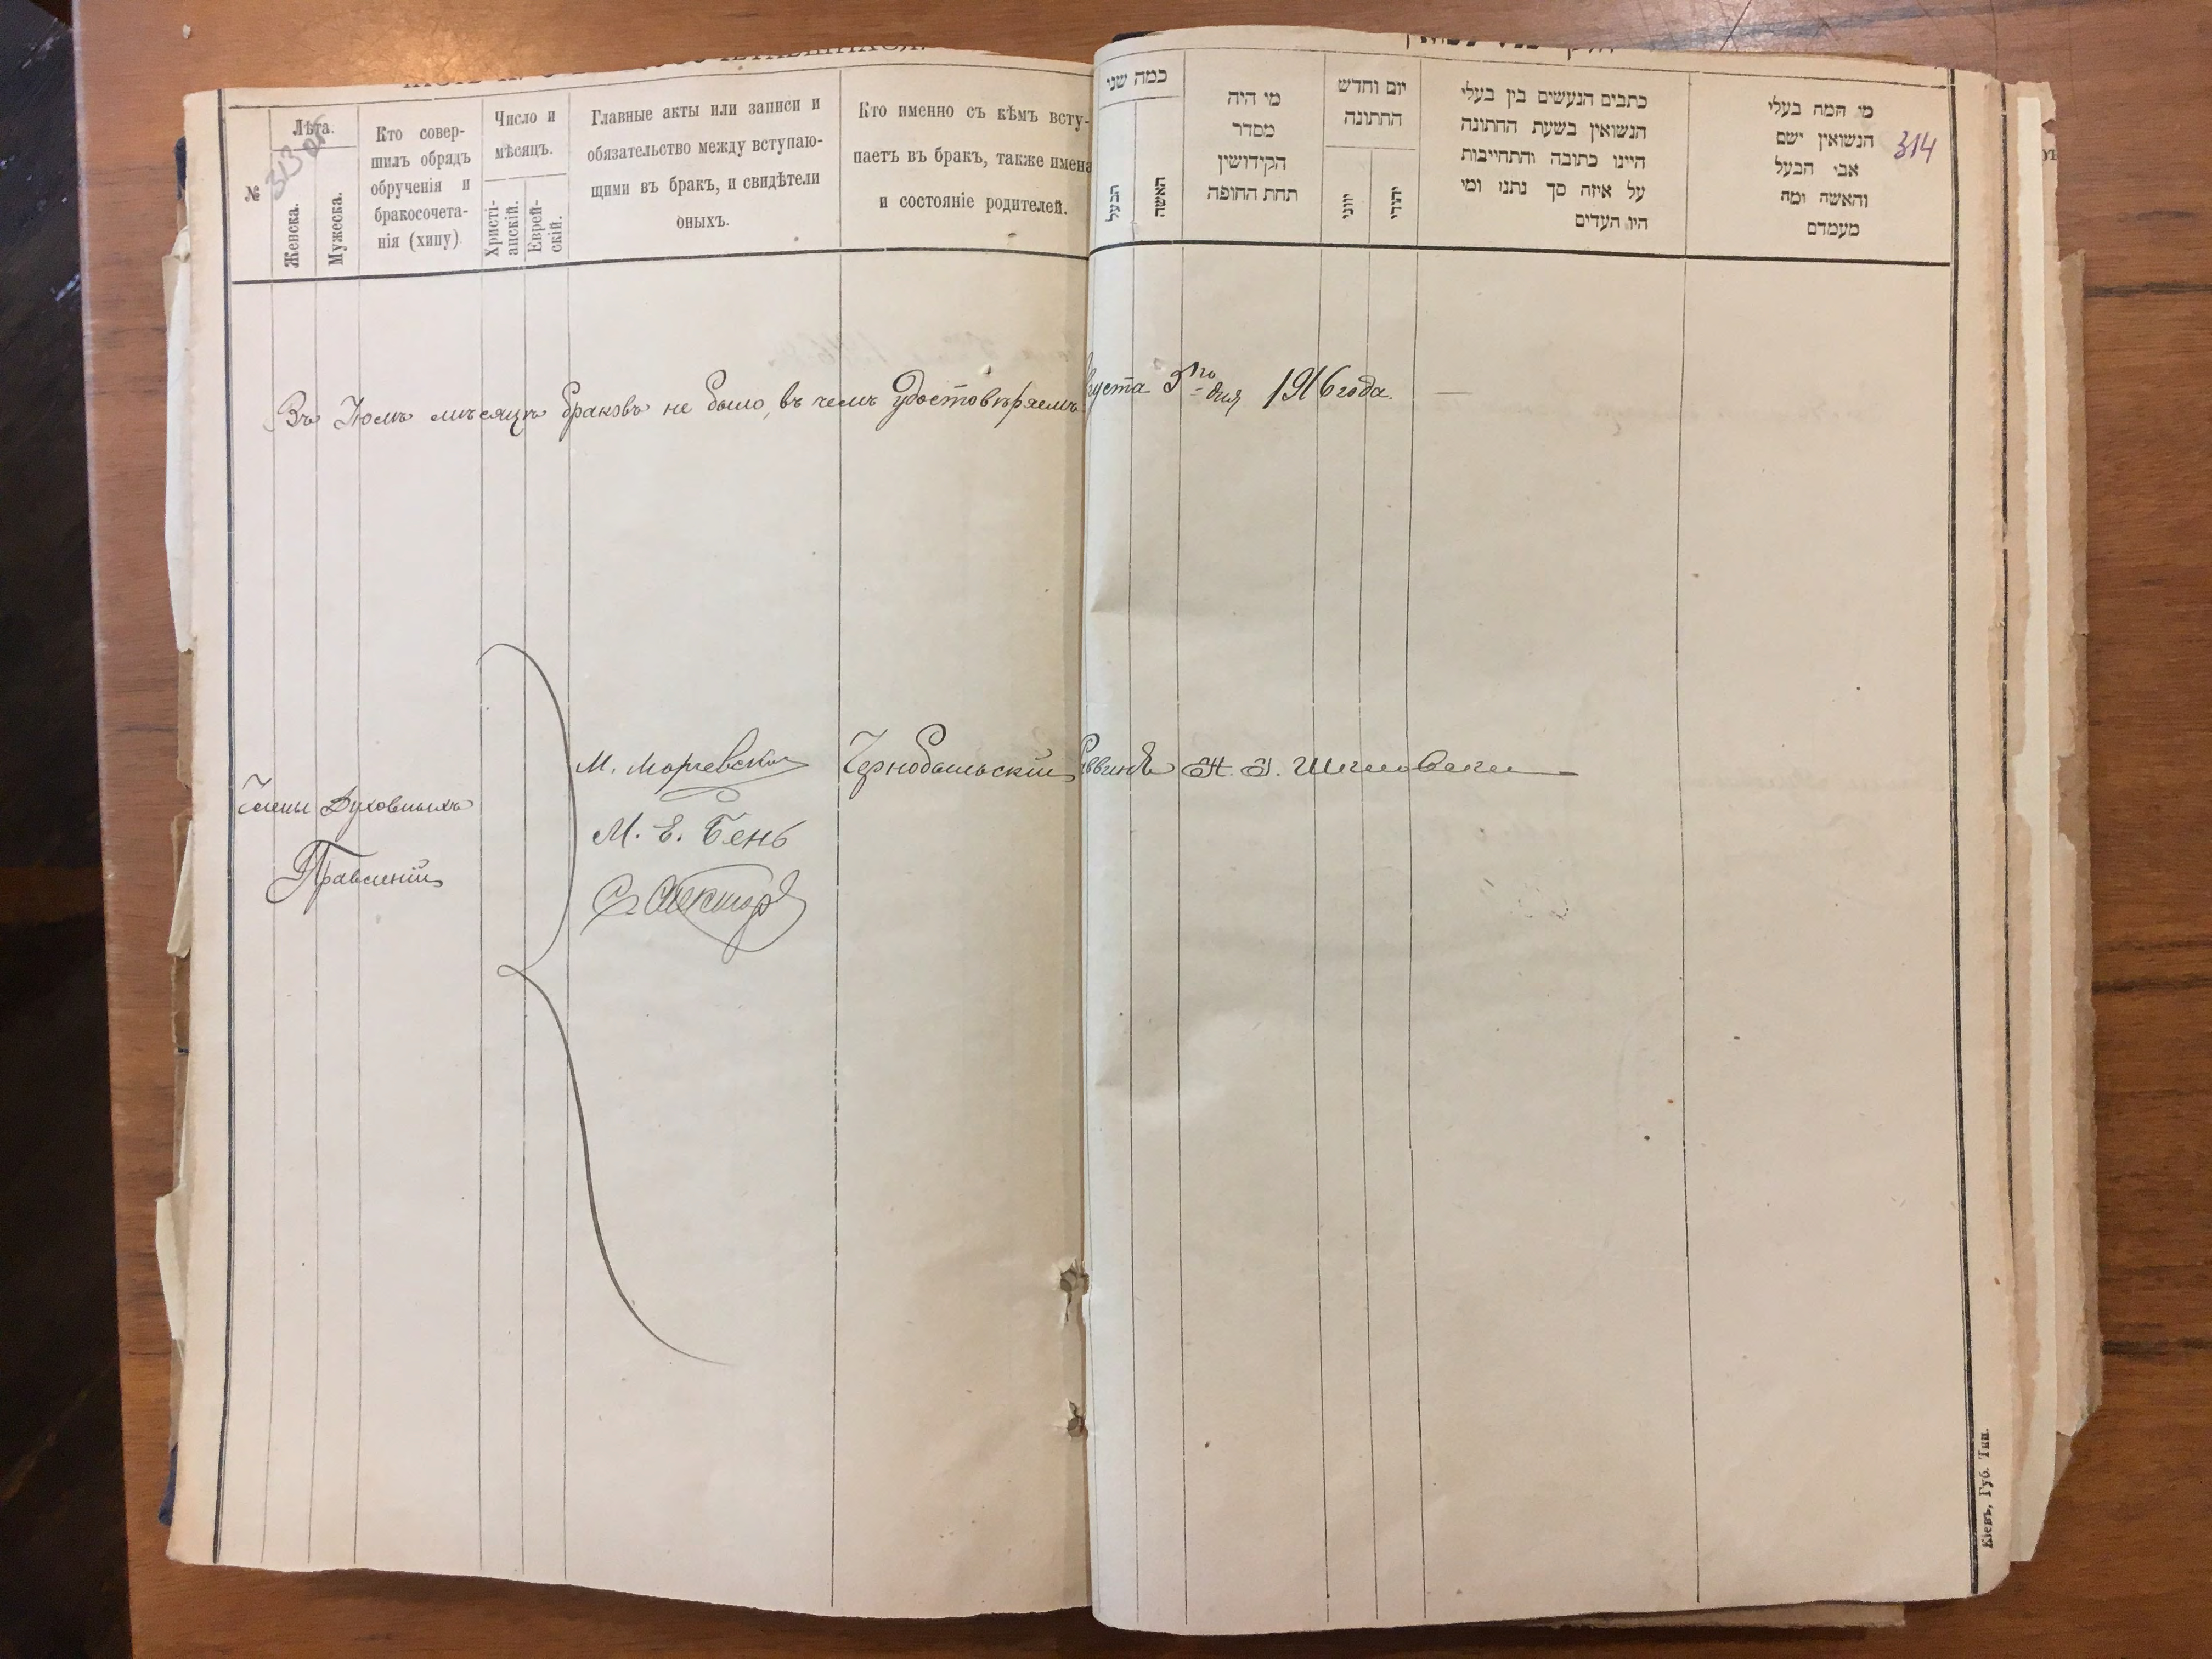 №
Лѣта.
Женска.
Мужеска.
Кто совер-
шилъ обрядъ
обрученія и
бракосочета-
нія (хипу)
Число и
мѣсяцъ.
Христі-
анскій.
Еврей-
скій.
Главные акты или записи и
обязательство между вступаю-
щими въ бракъ, и свидѣтели
оныхъ.
Кто именно съ кѣмъ всту-
паетъ въ бракъ, также имена
и состояніе родителей.
313 об
כמה שני
הבעל
האשה
מי היה
מסדר
הקידושין
תחת החופה
יום וחדש
החתונה
יווני
יהודי
כתבים הנעשים בין בעלי
הנשואין בשעת החתונה
היינו כתובה והתחייבות
על איזה סך נתנו ומי
היו העדים
מי המה בעלי
הנשואין ישם
אבי הבעל
והאשה ומה
מעמדם
314
Въ Іюлѣ мѣсяцѣ браковъ не было, въ чемъ удостовѣряемъ августа 3го дня 1916 года.
Члены Духовныхъ
Правленій
М. Е. Бень
Чернобыльскій
Кіевъ, Губ. Тип.